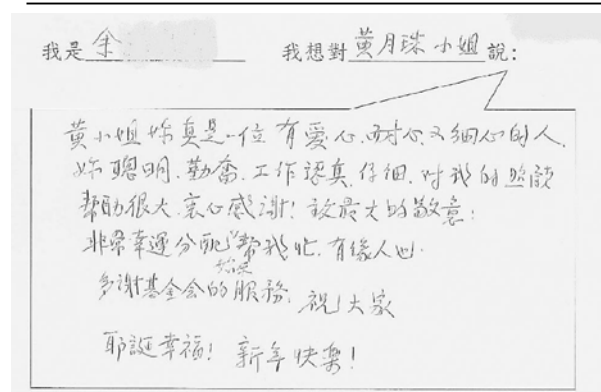 我是 余 我想對 黄月珠 小姐 說:
黄小姐妳真是一位有愛心.耐心又細心的人.
妳聰明.勤奮.工作認真.仔細.对我的照顧
帮助很大.衷心感谢!致最大的敬意!
非常幸運分配 妳來 帮我忙.有缘人也.
多谢基金会的服務. 祝大家
耶誕幸福! 新年快楽!